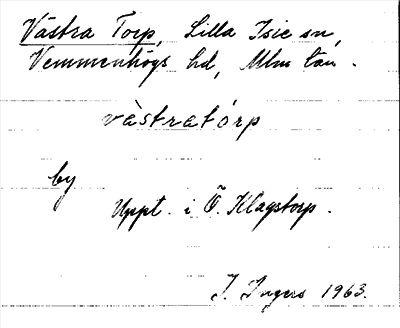 Västra Torp, Lilla Isie sn,
Vemmenhögs hd, Mlm län.
vàstratórp
by
Uppt. i Ö. Klagstorp.
I. Ingers 1963.